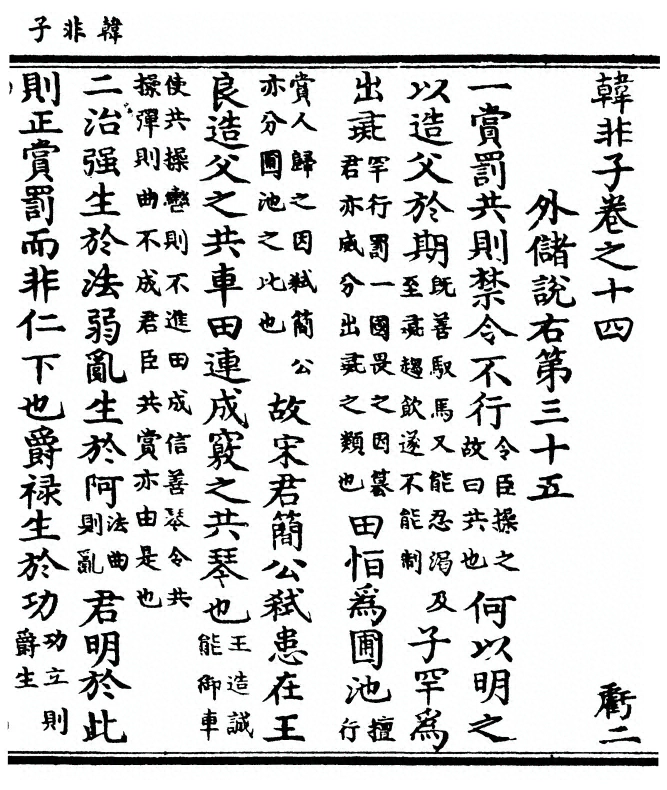 韓非子
韓非子卷之十四 虧二
外儲說右第三十五
一賞罰共則禁令不行令臣操之故曰共也何以明之
以造父於期旣善馭馬又能忍渴及至彘趨飲遂不能制子罕爲
出彘罕行罰一國畏之因簒君亦威分出彘之類也田恒爲圃池擅行
賞人歸之因弑簡公亦分圃池之比也故宋君簡公弑患在王
良造父之共車田連成竅之共琴也王造誠能御車
使共操轡則不進田成信善琴令共操彈則曲不成君臣共賞亦由是也
二治强生於法弱亂生於阿法曲則亂君明於此
則正賞罰而非仁下也爵禄生於功功立則爵生